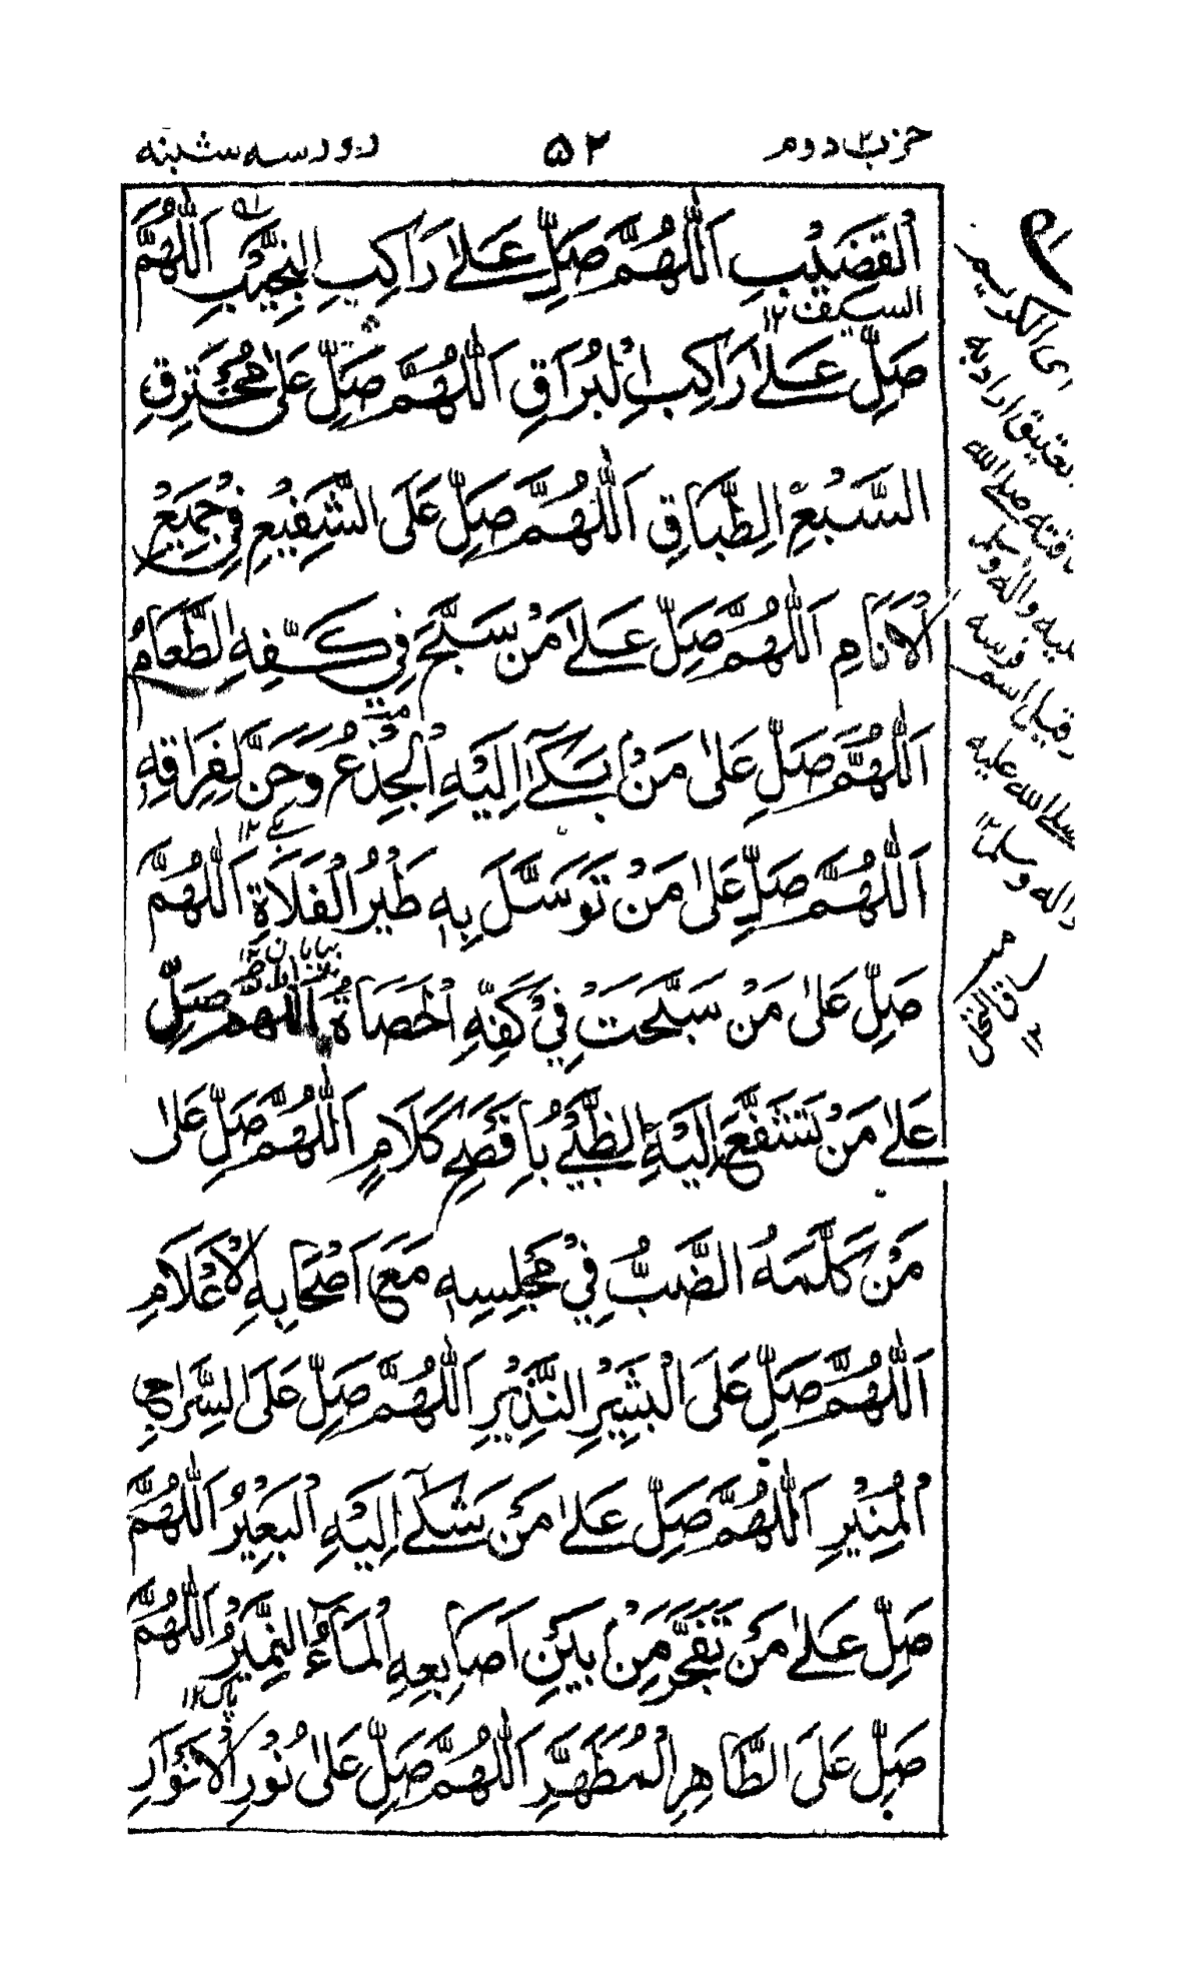 حزب دوم ۵۲ روز سه شنبه
اَلْقَضِيْبِ اَللّٰهُمَّ صَلِّ عَلٰى رَاكِبِ النَّجِيْبِ اَللّٰهُمَّ
السيف ۱۲
صَلِّ عَلٰى رَاكِبِ الْبُرَاقِ اَللّٰهُمَّ صَلِّ عَلٰى مُخْتَرِقِ
السَّبْعِ الطِّبَاقِ اَللّٰهُمَّ صَلِّ عَلَى الشَّفِيْعِ فِيْ جَمِيْعِ
الْاَنَامِ اَللّٰهُمَّ صَلِّ عَلٰى مَنْ سَبَّحَ فِيْ كَفِّهِ الطَّعَامُ
اَللّٰهُمَّ صَلِّ عَلٰى مَنْ بَكٰٓى اِلَيْهِ الْجِذْعُ وَحَنَّ لِفِرَاقِهٖ
اَللّٰهُمَّ صَلِّ عَلٰى مَنْ تَوَسَّلَ بِهٖ طَيْرُ الْفَلَاةِ اَللّٰهُمَّ
بيابان ۱۲
صَلِّ عَلٰى مَنْ سَبَّحَتْ فِيْ كَفِّهِ الْحَصَاةُ اَللّٰهُمَّ صَلِّ
عَلٰى مَنْ تَشَفَّعَ اِلَيْهِ الظَّبْيُ بِاَفْصَحِ كَلَامٍ اَللّٰهُمَّ صَلِّ عَلٰى
مَنْ كَلَّمَهُ الضَّبُّ فِيْ مَجْلِسِهٖ مَعَ اَصْحَابِهِ الْاَعْلَامِ
اَللّٰهُمَّ صَلِّ عَلَى الْبَشِيْرِ النَّذِيْرِ اَللّٰهُمَّ صَلِّ عَلَى السِّرَاجِ
الْمُنِيْرِ اَللّٰهُمَّ صَلِّ عَلٰى مَنْ شَكٰٓى اِلَيْهِ الْبَعِيْرُ اَللّٰهُمَّ
صَلِّ عَلٰى مَنْ تَفَجَّرَ مِنْ بَيْنِ اَصَابِعِهِ الْمَآءُ النَّمِيْرُ اَللّٰهُمَّ
پاک ۱۲
صَلِّ عَلَى الطَّاهِرِ الْمُطَهَّرِ اَللّٰهُمَّ صَلِّ عَلٰى نُوْرِ الْاَنْوَارِ
اى الكريم
ناقته صلى الله
عليه واله وسلم
وقيل اسم فرسه
صلى الله عليه
واله وسلم ۱۲